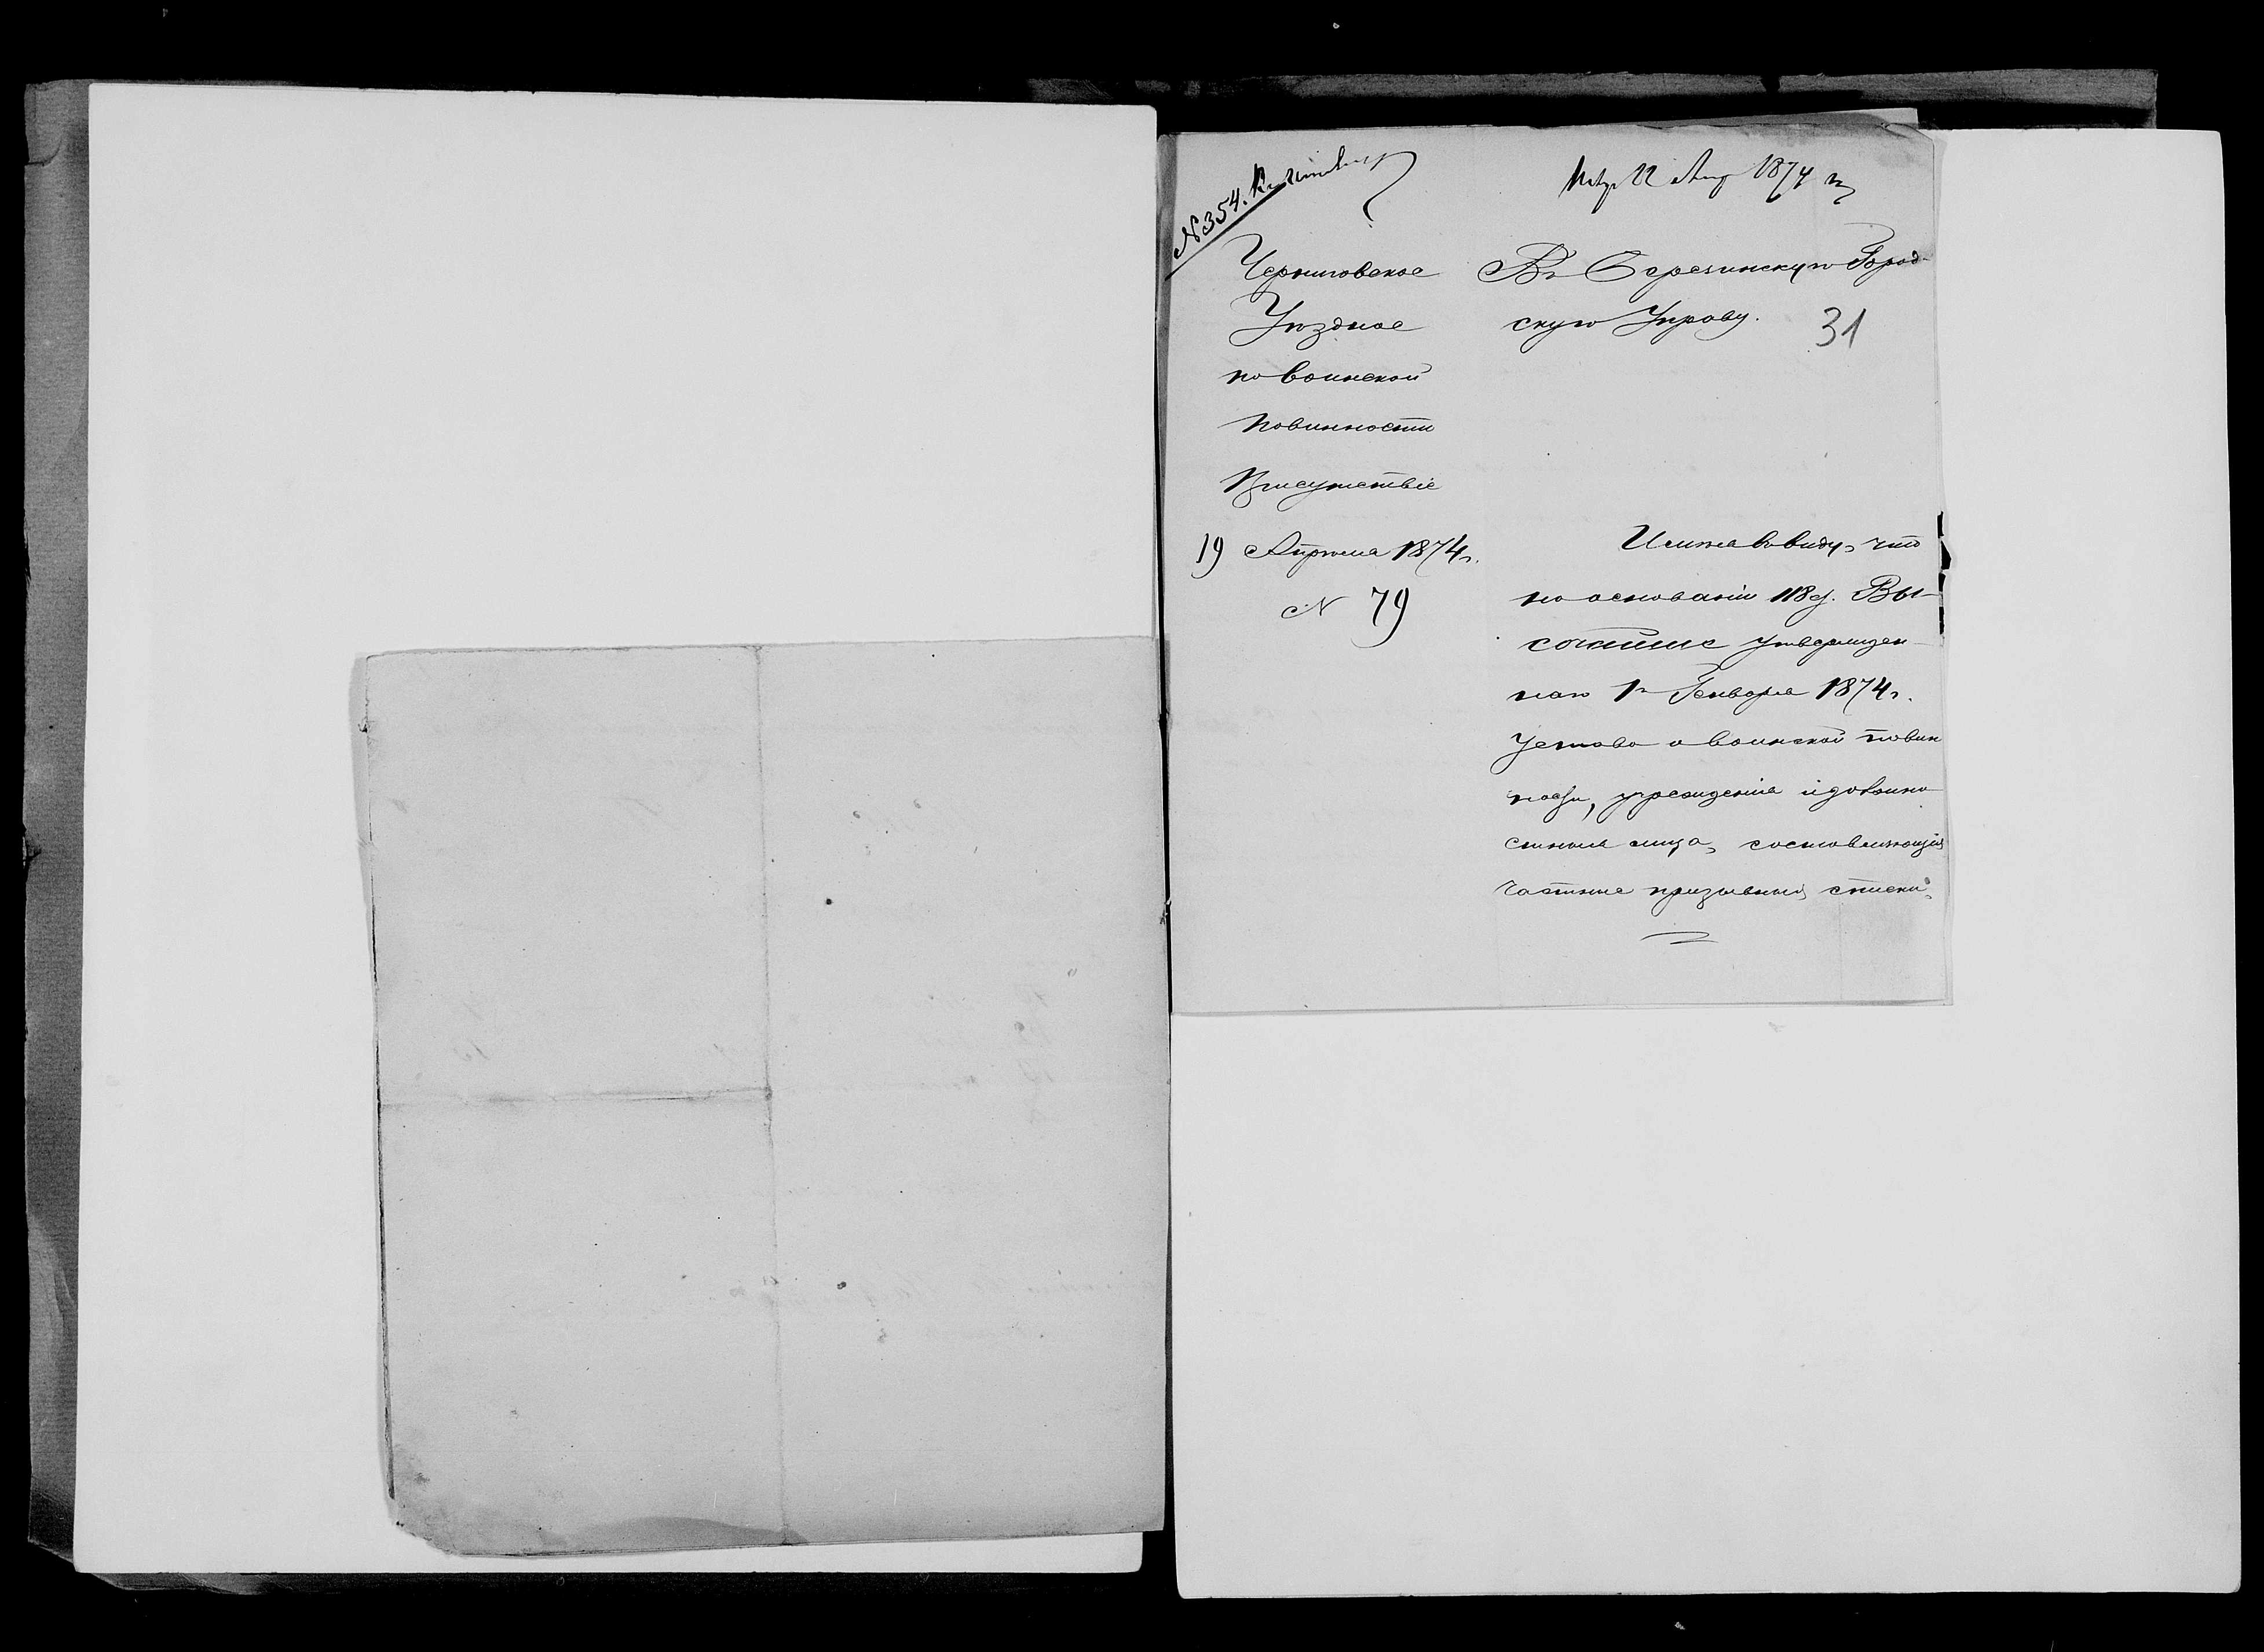 № 354.
22 Апр 1874
Черниговское
Уѣздное
по воинской
повинности
Присутствіе
19 Апрѣля 1874 г.
№ 79
Въ Березинскую Город-
скую Управу.
31
Имѣя въ виду, что
на основаніи 118 ст. Вы-
сочайше утвержден-
наго 1го Генваря 1874 г.
Устава о воинской повин
ности, учрежденія и должно
стныя лица, составляющія
частные призывные списки,